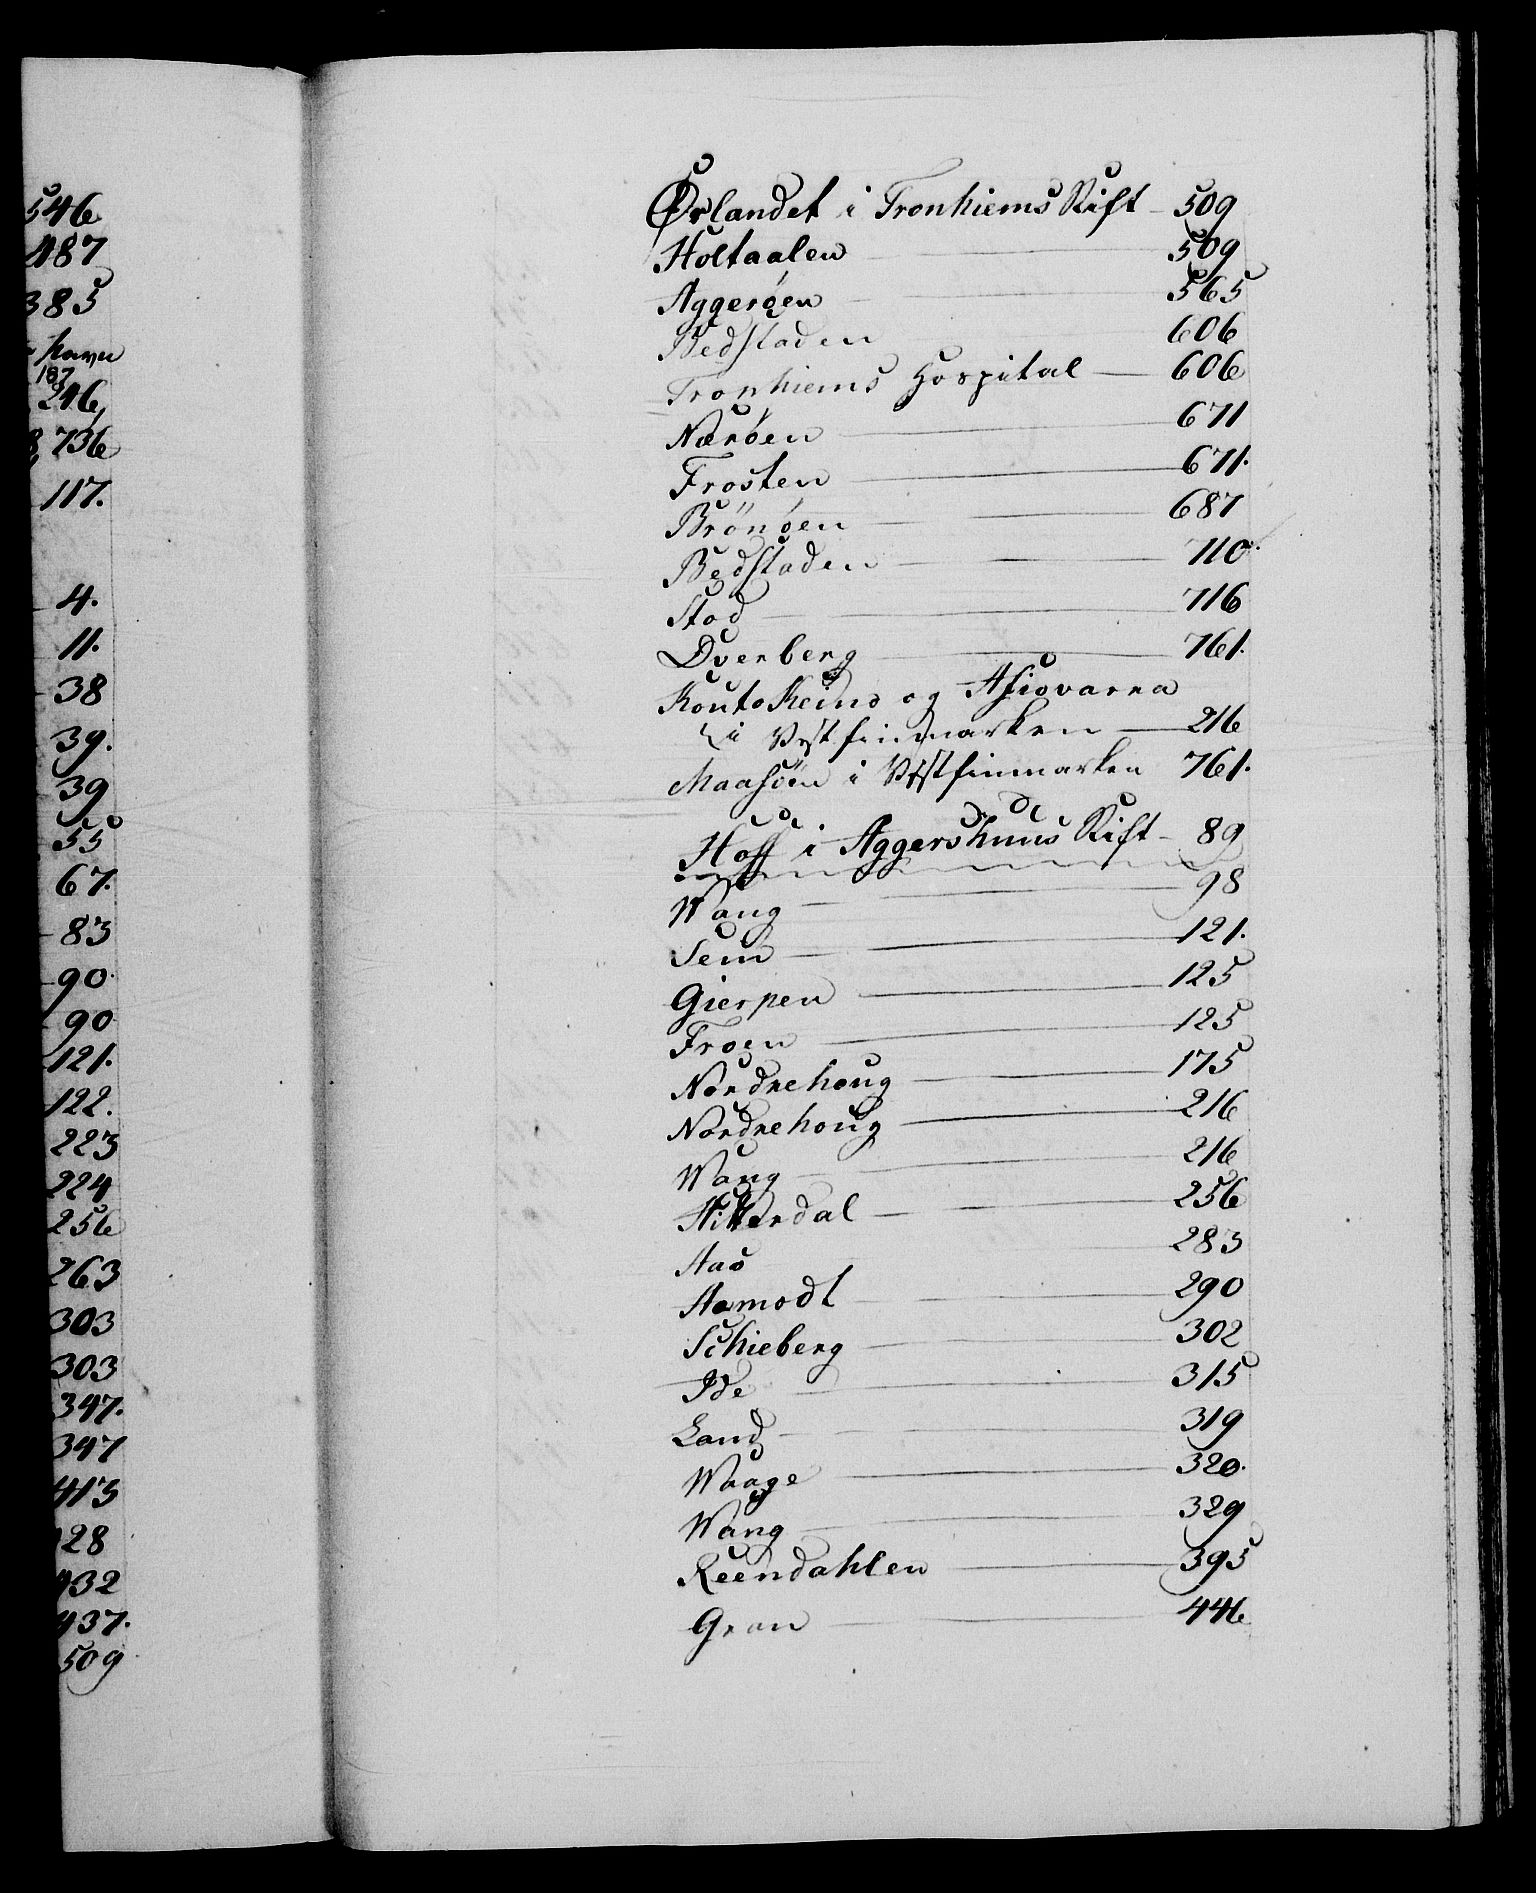 546
487
385
havn
187
246
736
117.
4.
11.
38
39.
39
55
67.
83
90.
90
121.
122.
223
224
256
263
303
303
347.
347
413
28
32
437.
509
Ørlandet i Tronhiems Stift - 509
Holtaalen 509
Aggerøen 565
Bedstaden 606
Tronhiems Hospital 606
Nærøen 671
Frosten 671.
Brönøen 687
Bedstaden 710.
Stod 716
Dverberg 761.
Koutokeino og Afiovarra
i Vestfinmarken 216
Maasöen i Vestfinmarken 761.
Hoff i Aggershuus Stift - 89
Wang 98
Sem 121.
Gierpen 125
Froen 125
Nordrehoug 175
Nordrehoug 216
Wang 216
Hitterdal 256
Aas 283
Aamodt 290
Schieberg 302
Ide 315
Land 319
Waage 320.
Wang 329
Reendahlen 395
Gran 446